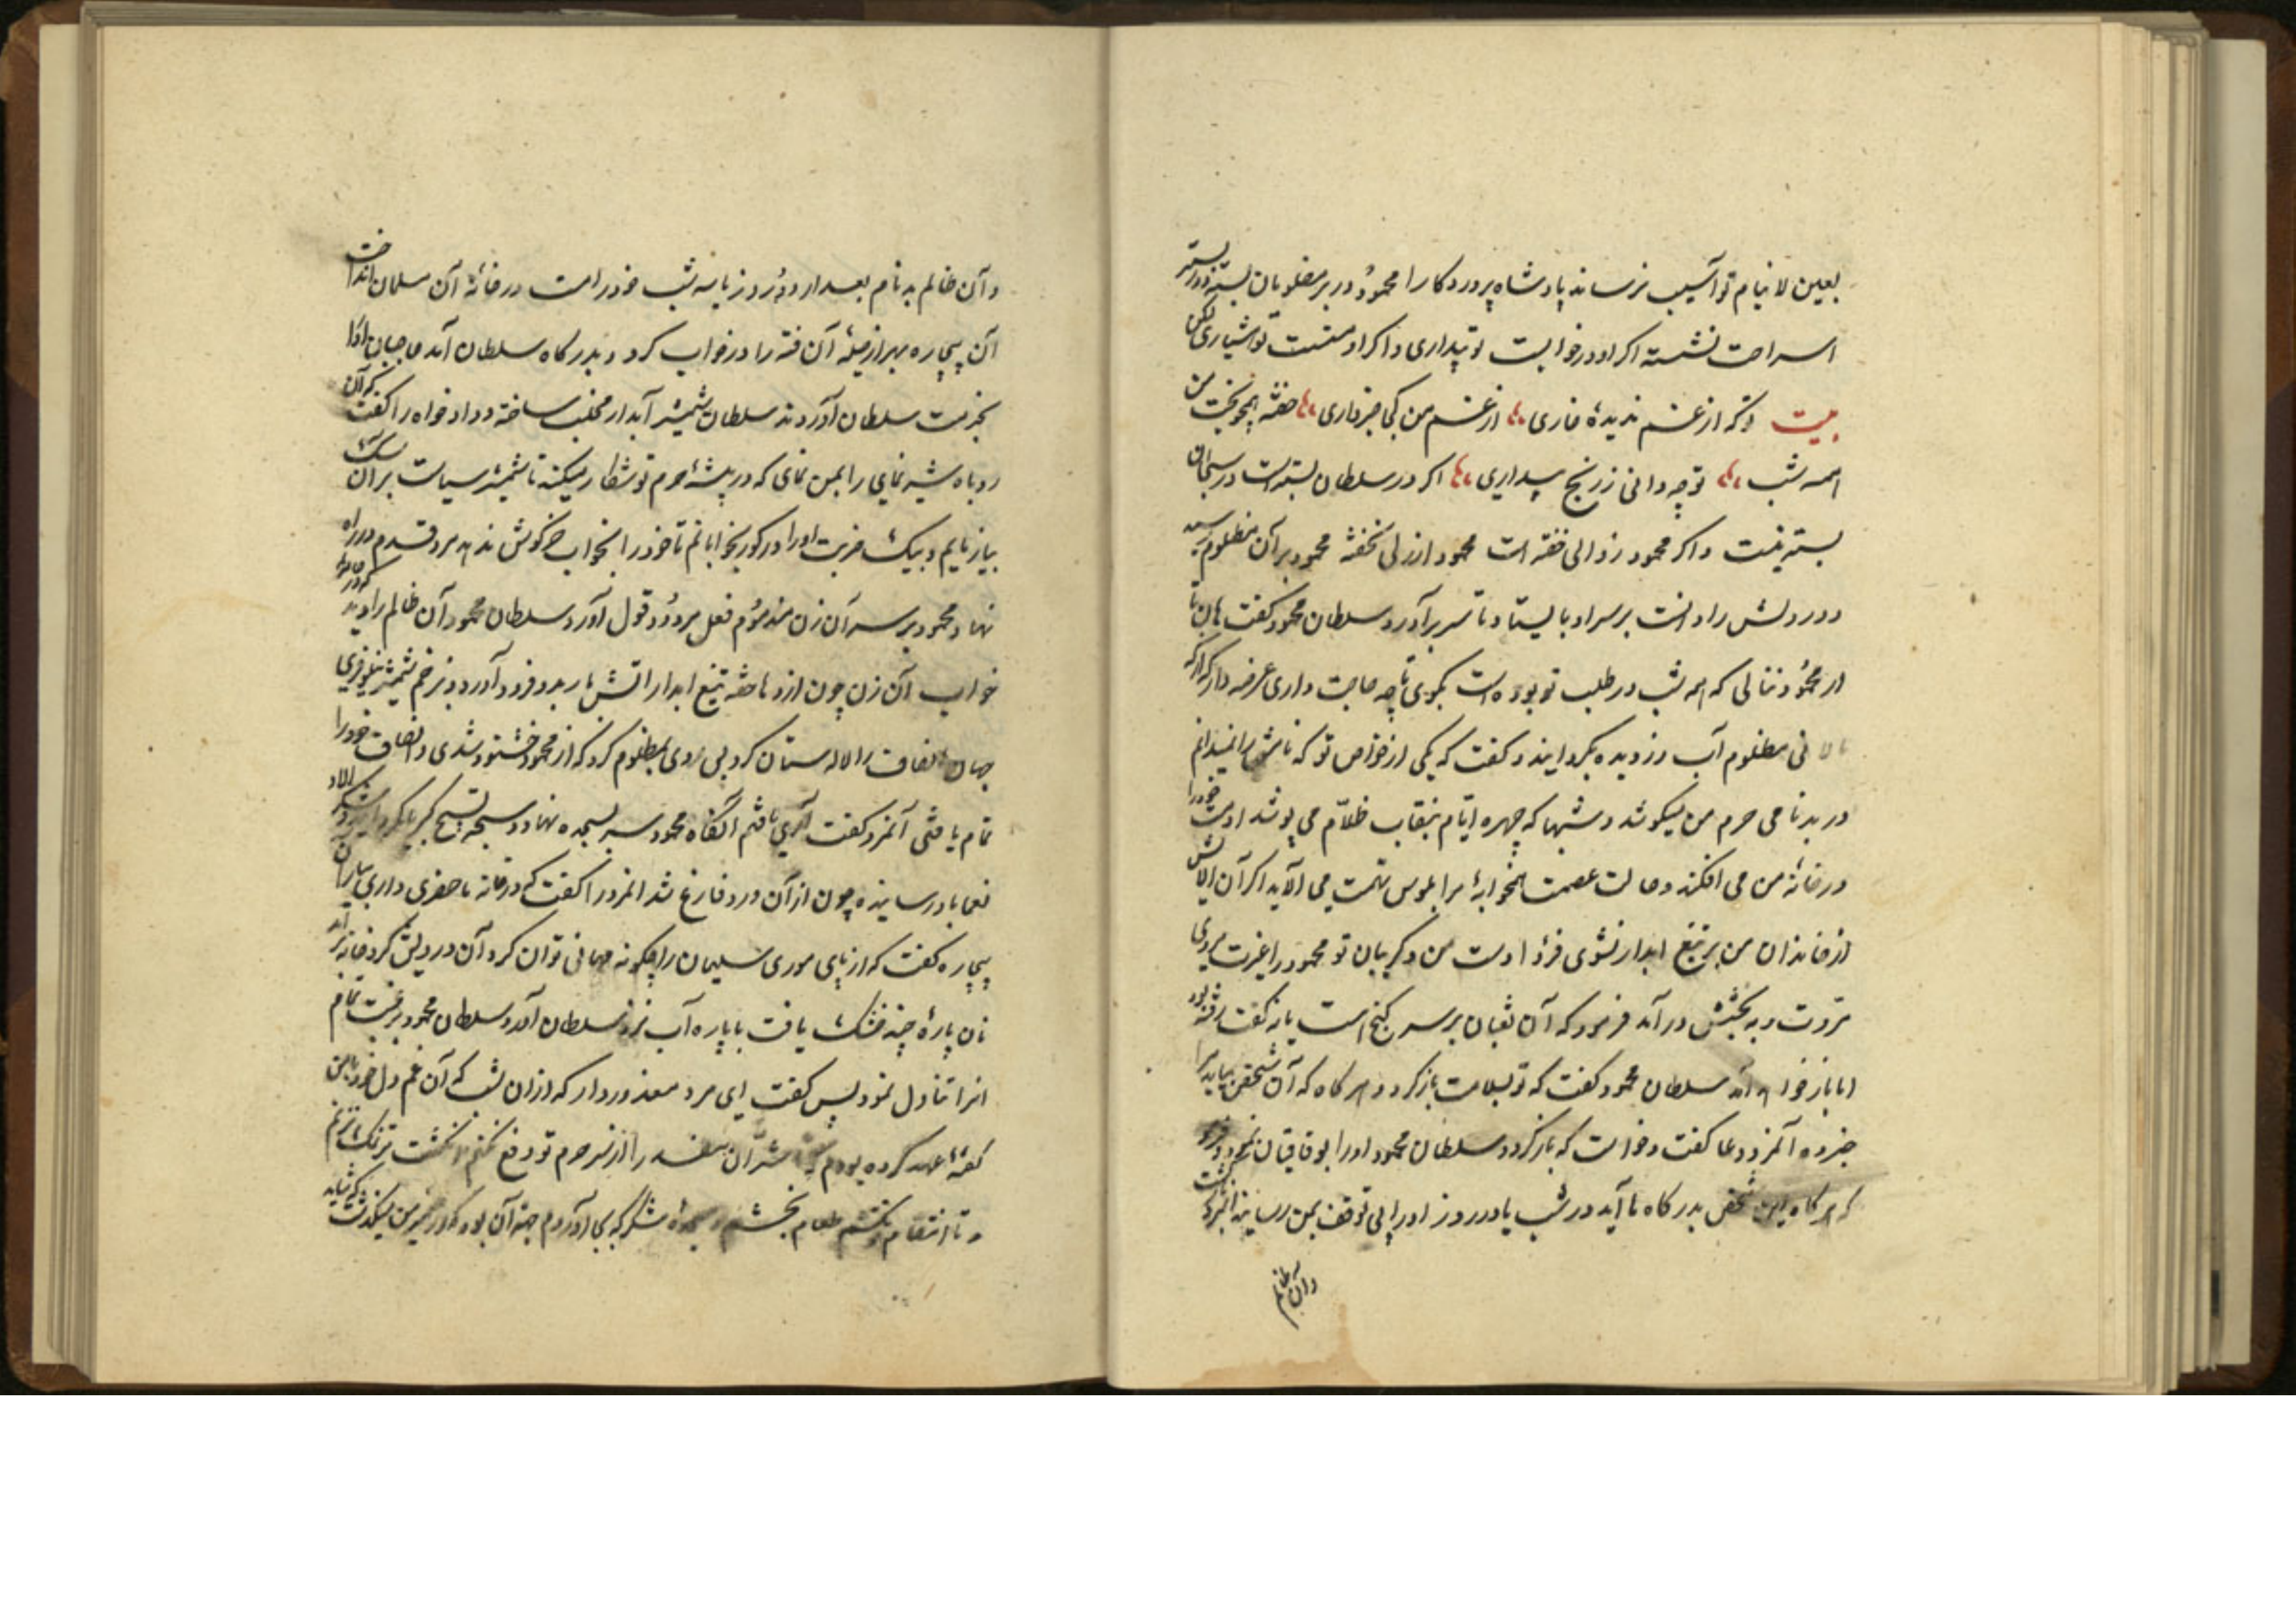 بعین لا ینام تو آسیب نرساند پادشاه پروردکارا محمود در بر مظلومان بسته و در بستر
استراحت نشسته اکر او در خوابست تو بیداری و اکر او مستست تو هشیاری لکن
بیت ای که از غم ندیده خاری از غم من کجا خبر داری خفته همچو بخت من
همه شب تو چه دانی ز رنج بیداری اکر در سلطان بسته است در سبحان
بسته نیست و اکر محمود زوالی خفته است محمود ازلی نخفته محمود بر آن مظلوم رسید
و درد دلش را دانست بر سر او بایستاد تا سر برآورد سلطان محمود کفت هان تا
از محمود ننالی که همه شب در طلب تو بوده است بکوی تا چه حاجت داری عرضه دار که از که
نالانی مظلوم آب در دیده بکردانید و کفت که یکی از خواص تو که نامش را نمیدانم
در بدنامی حرم من میکوشد و شبها که چهره ایام بنقاب ظلام می پوشد او مست خود را
در خانه من می افکند و حالت عصمت همخوابه مرا بلوس تهمت می آلاید اکر آن آلایش
از خاندان من بر تیغ ابدار نشوی فردا دست من و کریبان تو محمود را غیرت مردی
مروت در بجنبش درآمد فرمود که آن ثعبان بر سر کنج است یا نه کفت رفته بود
اما باز خواهد آمد سلطان محمود کفت که تو بسلامت باز کرد و هر کاه که آن شخص بیاید مرا
خبر ده آنمرد دعا کفت و خواست که باز کردد سلطان محمود او را بوثاقیان نمود و فرمود
که هر کاه این شخص بدر کاه ما آید در شب یا در روز او را بی توقف بمن رسانید آنمرد بازکشت
و آن ظالم
و آن ظالم بدنام بعد از دو روز یا سه شب خود را مست در خانه آن مسلمان انداخت
آن بیچاره بهر از حیله آن فتنه را در خواب کرد و بدرکاه سلطان آمد حاجبان او را
بخدمت سلطان آوردند سلطان شمشیر آبدار مخلب ساخته و دادخواه را کفت که آن
روباه شیر نمای را بمن نمای که در بیشه حرم تو شکار میکند تا شمشیر سیاست بر آن سک
بیازمایم و بیک ضربت او را در کور بخوابانم تا خود را بخواب خرکوش ندهد مرد قدم در راه
نهاد و محمود بر سر آن زن مذموم فعل مردود قول آورد سلطان محمود آن ظالم را دید که در جامه
خواب آن زن چون اژدها خفته تیغ ابدار آتش بار بدو فرود آورد و بزخم شمشیر نیلوفری
جهان انصاف را لاله ستان کرد پس روی بمظلوم کرد که از محمود خشنود شدی و انصاف خود را
تمام یافتی آنمرد کفت آری یافتم آنکاه محمود سر بسجده نهاد و سبحه تسبیح
چون از آن ورد فارغ شد آنمرد را کفت که در خانه ماحضری داری بیار آن
بیچاره کفت که از پای موری سلیمان را چکونه مهمانی توان کرد آن درویش کرد خانه برآمد
نان پاره چند خشک یافت با پاره آب نزد سلطان آمد و سلطان محمود برغبت تمام
آنرا تناول نمود پس کفت ای مرد معذور دار که از آن شب که آن غم دل خود با من
کفته عهد کرده بودم که تا شر آن مفسد را از سر حرم تو دفع نکنم انکشت بر نمک نزنم
و تا انتقام نکشم طعام نچشم و سجده شکر که بجا آوردم جهة آن بود که در ضمیر من میکذشت که شاید